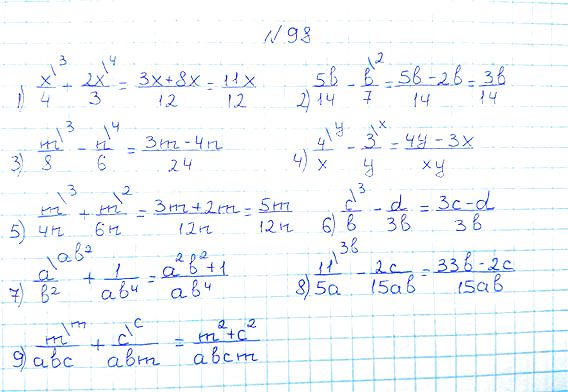 №98
1) x\3/4 + 2x\4/3 = 3x+8x/12 = 11x/12 2) 5в/14 - в\2/7 = 5в-2в/14 = 3в/14
3) m\3/8 - n\4/6 = 3m-4n/24 4) 4\y/x - 3\x/y = 4y-3x/xy
5) m\3/4n + m\2/6n = 3m+2m/12n = 5m/12n 6) c\3/в - d/3в = 3c-d/3в
7) a\aв²/в² + 1/aв⁴ = a²в²+1/aв⁴ 8) 11\3в/5a - 2c/15aв = 33в-2c/15aв
9) m\m/aвc + c\c/aвm = m²+c²/aвcm